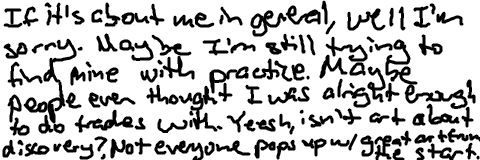 If it's about me in general, well I'm
sorry. Maybe I'm still trying to
find mine with practice. Maybe
people even thought I was alright enough
to do trades with. Yeesh, isn't art about
discovery? Not everyone pops up w/ great art from
the start.